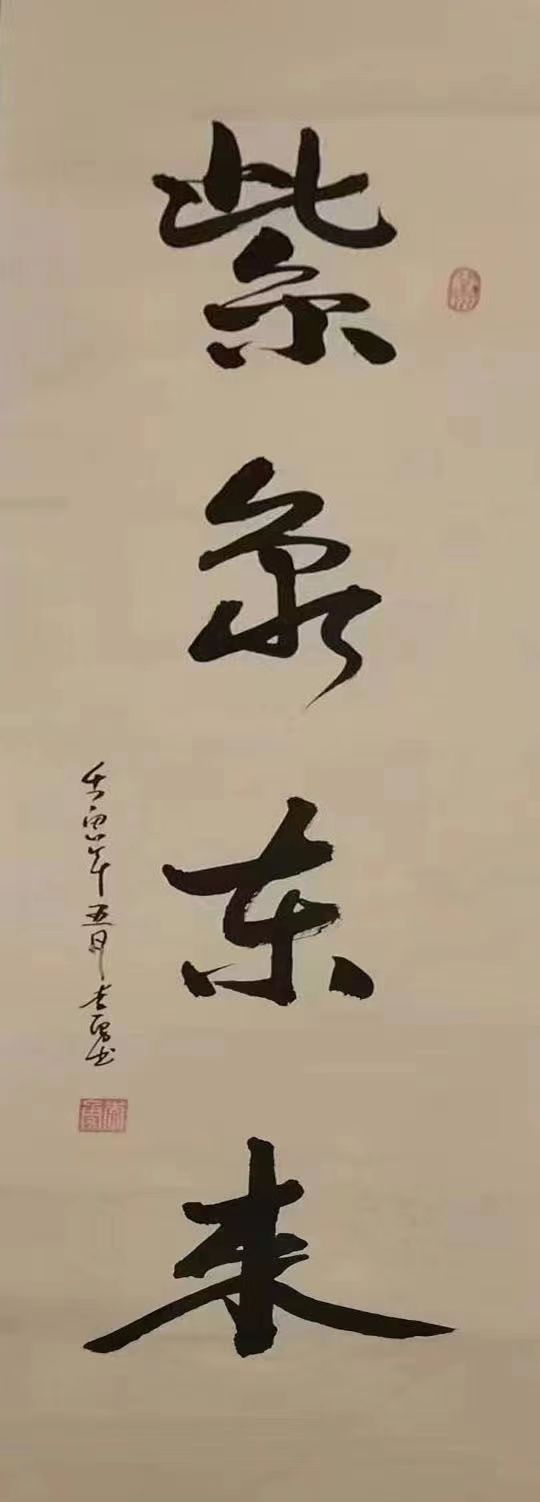 紫氣东来
壬寅年五月 书